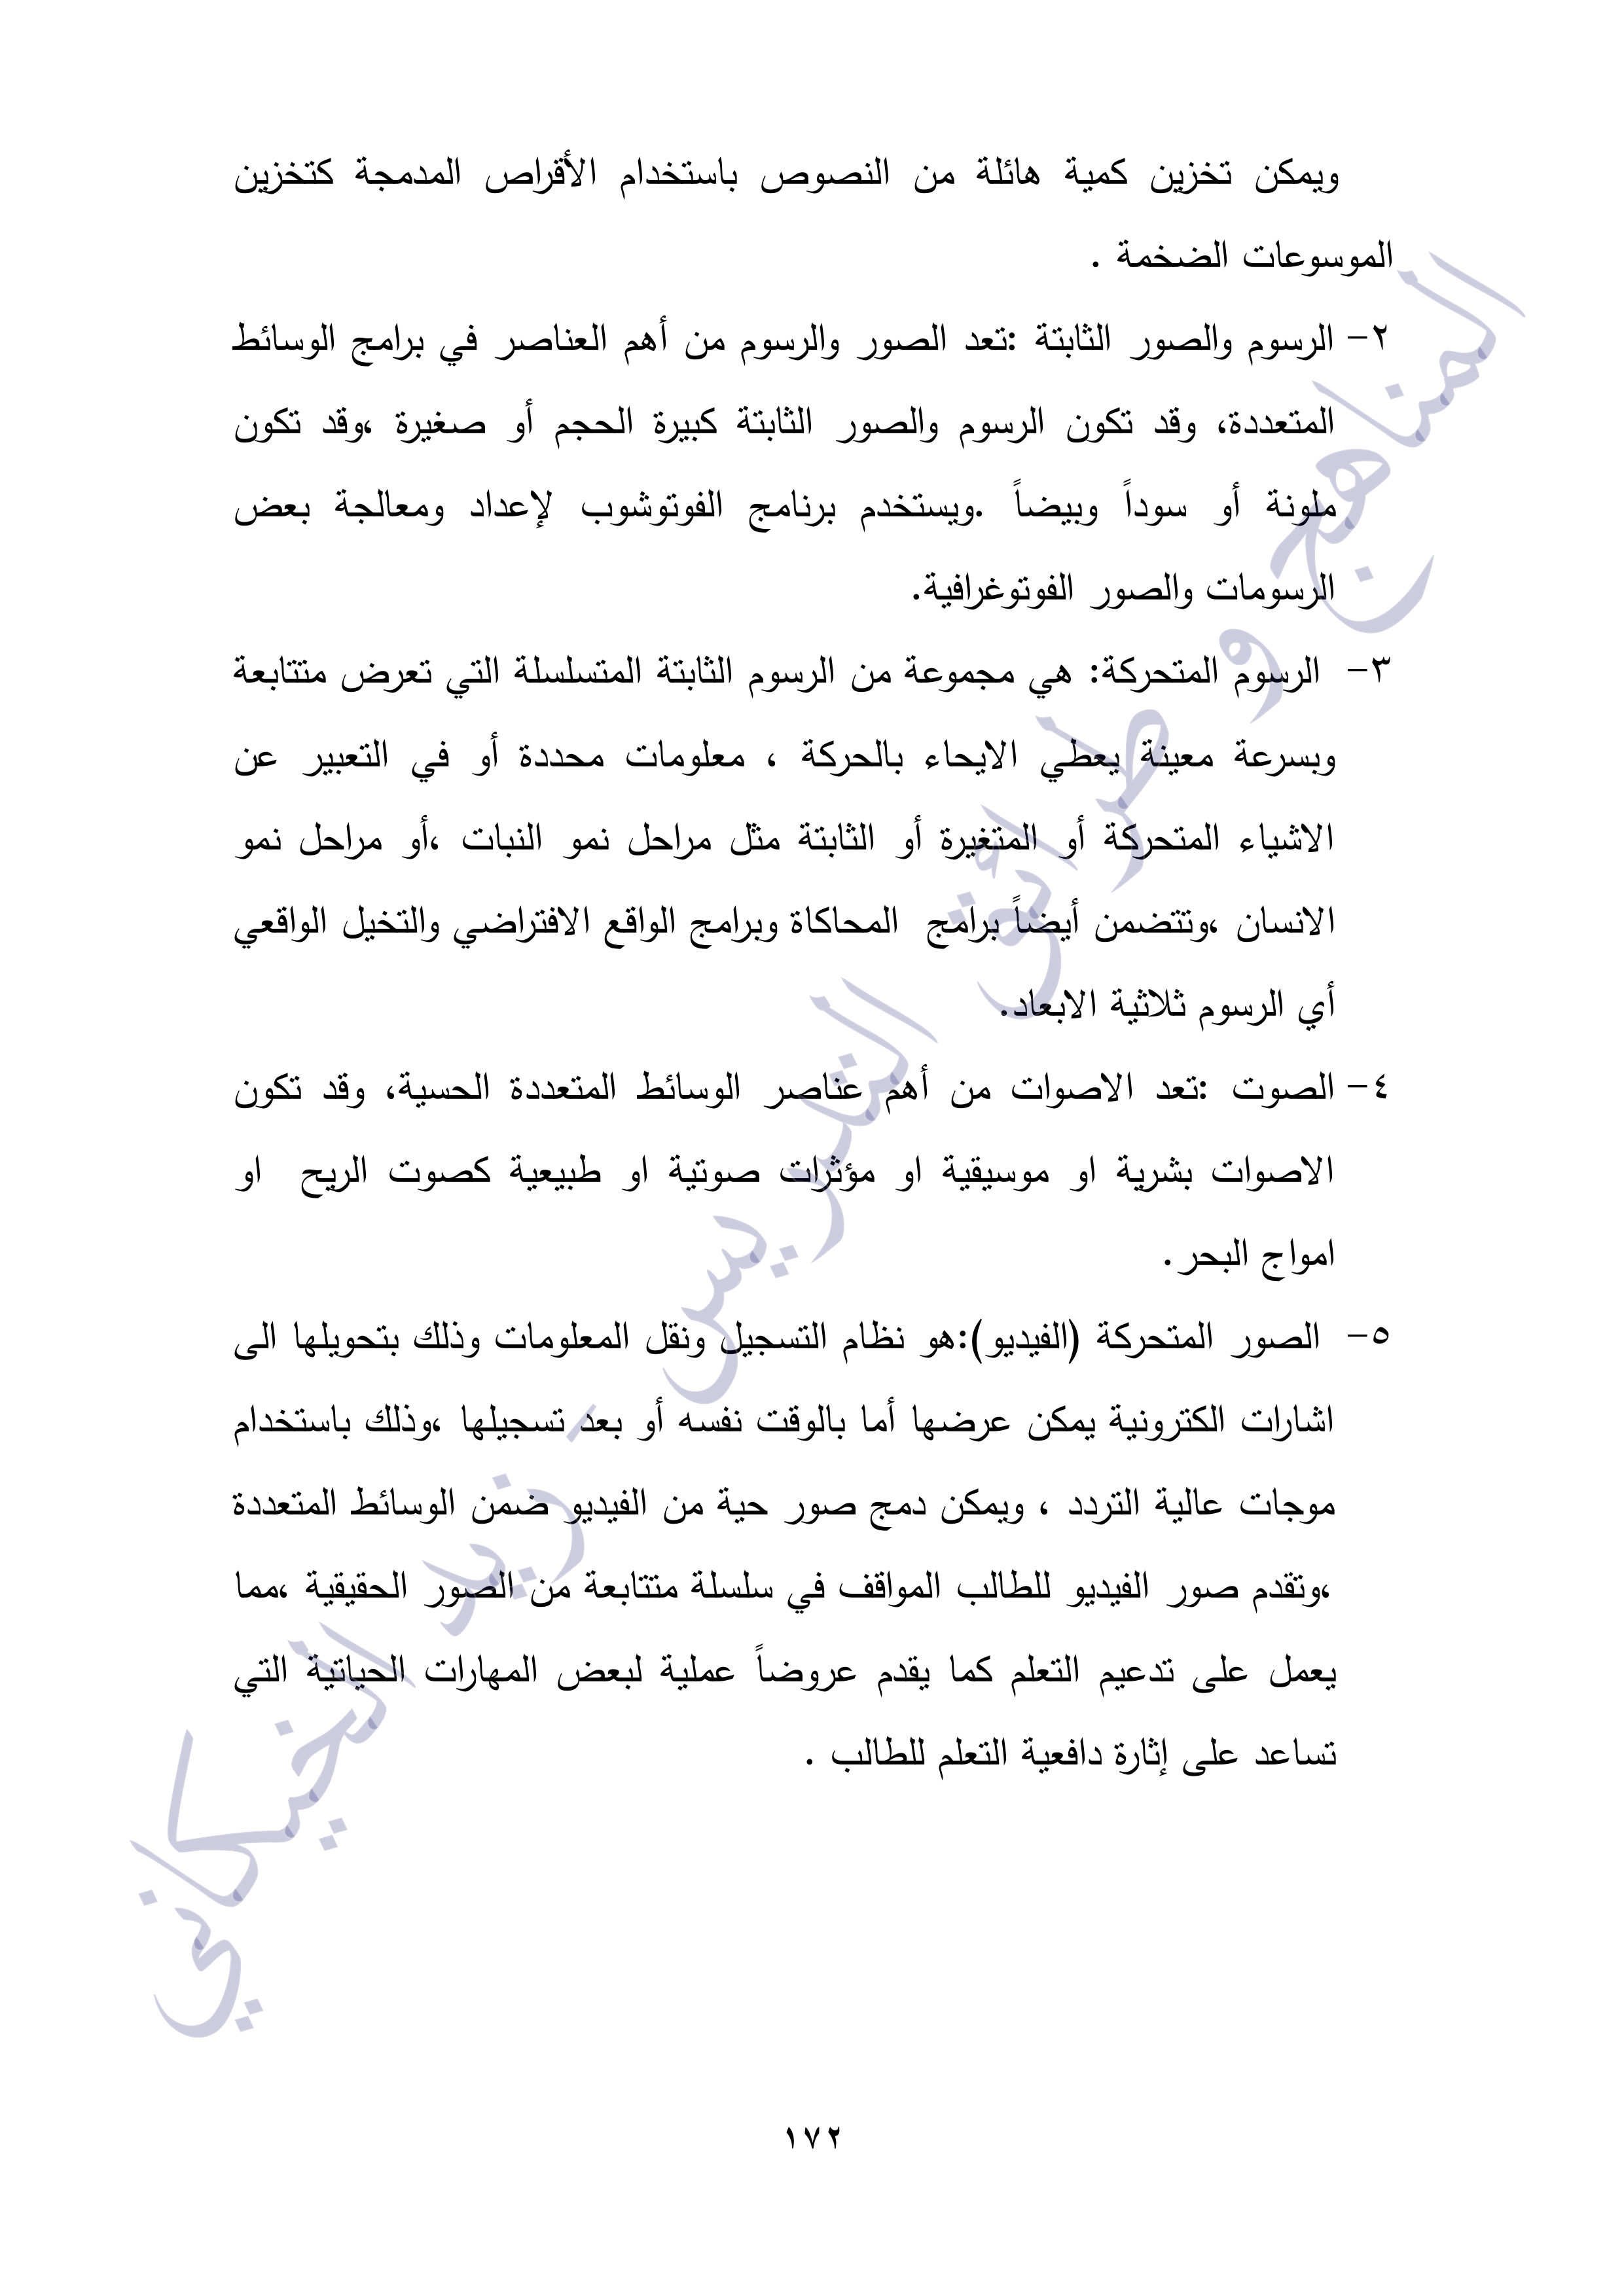 ويمكن تخزين كمية هائلة من النصوص باستخدام الأقراص المدمجة كتخزين
الموسوعات الضخمة .
٢- الرسوم والصور الثابتة :تعد الصور والرسوم من أهم العناصر في برامج الوسائط
المتعددة، وقد تكون الرسوم والصور الثابتة كبيرة الحجم أو صغيرة ،وقد تكون
ملونة أو سوداً وبيضاً .ويستخدم برنامج الفوتوشوب لإعداد ومعالجة بعض
الرسومات والصور الفوتوغرافية.
٣- الرسوم المتحركة: هي مجموعة من الرسوم الثابتة المتسلسلة التي تعرض متتابعة
وبسرعة معينة يعطي الايحاء بالحركة ، معلومات محددة أو في التعبير عن
الاشياء المتحركة أو المتغيرة أو الثابتة مثل مراحل نمو النبات ،أو مراحل نمو
الانسان ،وتتضمن أيضاً برامج المحاكاة وبرامج الواقع الافتراضي والتخيل الواقعي
أي الرسوم ثلاثية الابعاد.
٤- الصوت :تعد الاصوات من أهم عناصر الوسائط المتعددة الحسية، وقد تكون
الاصوات بشرية او موسيقية او مؤثرات صوتية او طبيعية كصوت الريح او
امواج البحر.
٥- الصور المتحركة (الفيديو):هو نظام التسجيل ونقل المعلومات وذلك بتحويلها الى
اشارات الكترونية يمكن عرضها أما بالوقت نفسه أو بعد تسجيلها ،وذلك باستخدام
موجات عالية التردد ، ويمكن دمج صور حية من الفيديو ضمن الوسائط المتعددة
،وتقدم صور الفيديو للطالب المواقف في سلسلة متتابعة من الصور الحقيقية ،مما
يعمل على تدعيم التعلم كما يقدم عروضاً عملية لبعض المهارات الحياتية التي
تساعد على إثارة دافعية التعلم للطالب .
المناهج و طرائق التدريس - زيد الخيكاني
١٧٢